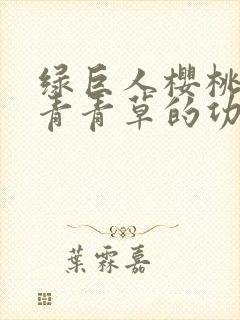 绿巨人樱桃
青青草的功
葉霖嘉